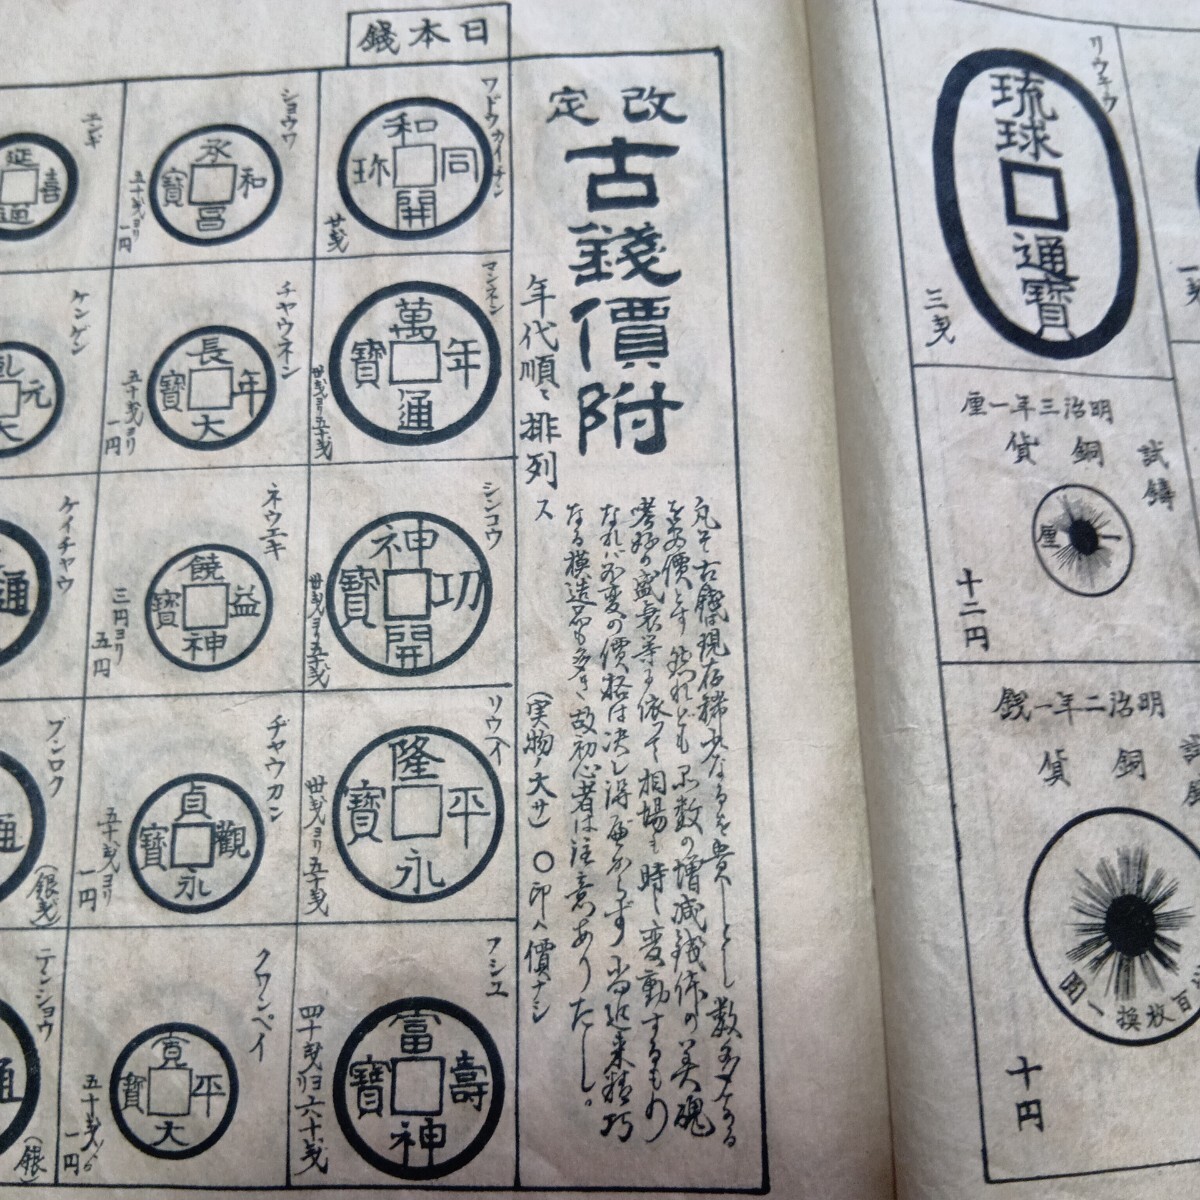 日本錢
改定
古錢價附
年代順ニ排列ス
(実物ノ大サ)〇印ハ價ナシ
凡そ古錢は現存稀少なるを貴しとし数多なる
を安價とす然れども品数の増減銭体の美醜
嗜好の盛衰等に依って相場も時に変動するもの
なれバ不変の價格は决し得べからず尚近来精巧
なる模造品も多き故初心者は注意ありたし。
ワドウカイチン
和同開珎
廿戋
マンネン
萬年通寶
卅戋ヨリ五十戋
シンコウ
神功開寶
卅戋ヨリ五十戋
リウヘイ
隆平永寶
卅戋ヨリ五十戋
フシユ
富壽神寶
四十戋ヨリ六十戋
ショウワ
承和昌寶
五十戋ヨリ
一円
チャウネン
長年大寶
五十戋ヨリ
一円
ネウエキ
饒益神寶
三円ヨリ
五円
ヂャウカン
貞觀永寶
五十戋ヨリ
一円
クワンペイ
寛平大寶
五十戋ヨリ
一円
エンギ
延喜通
ケンゲン
乾元大
ケイチャウ
通
ブンロク
通
(銀戋)
テンショウ
通
(銀
リウキウ
琉球通寶
三戋
明治三年一厘
試鋳
銅
貨
一厘
十二円
明治二年一銭
試
銅
貨
百枚換一圓
十円